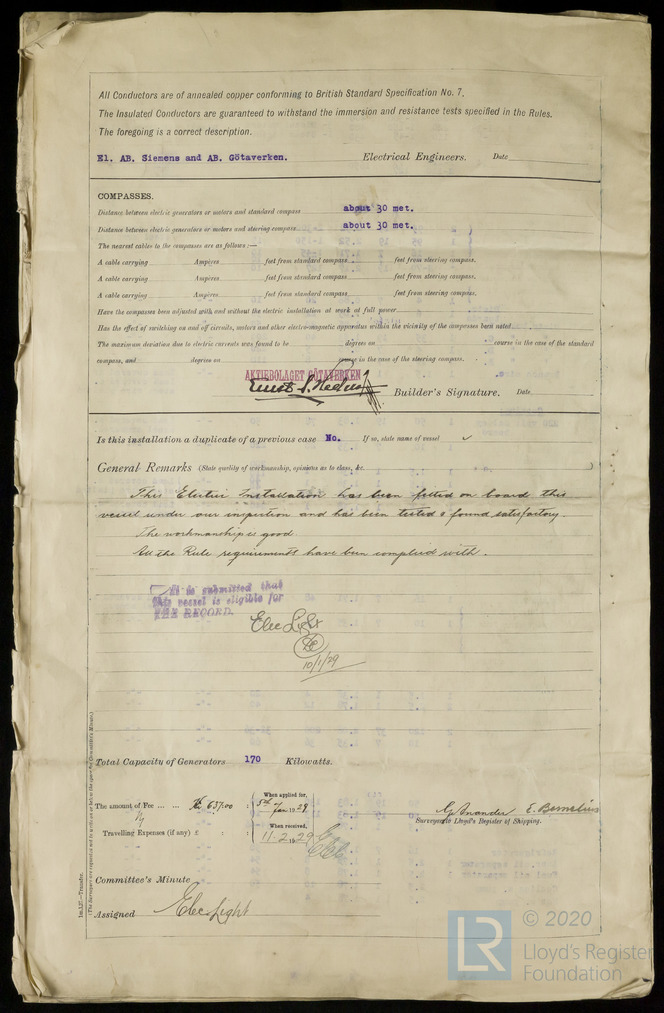 All Conductors are of annealed copper conforming to British Standard Specification No. 7.
The Insulated Conductors are guaranteed to withstand the immersion and resistance tests specified in the Rules.
The foregoing is a correct description.
El. AB. Siemens and AB. Götaverken. Electrical Engineers. Date
COMPASSES.
Distance between electric generators or motors and standard compass about 30 met.
Distance between electric generators or motors and steering compass about 30 met.
The nearest cables to the compasses are as follows:—
A cable carrying Ampères feet from standard compass feet from steering compass.
A cable carrying Ampères feet from standard compass feet from steering compass.
A cable carrying Ampères feet from standard compass feet from steering compass.
Have the compasses been adjusted with and without the electric installation at work at full power
Has the effect of switching on and off circuits, motors and other electro-magnetic apparatus within the vicinity of the compasses been noted
The maximum deviation due to electric currents was found to be degrees on course in the case of the standard
compass, and degrees on course in the case of the steering compass.
AKTIEBOLAGET GÖTAVERKEN
Builder's Signature. Date
Is this installation a duplicate of a previous case No. If so, state name of vessel ✓
General Remarks (State quality of workmanship, opinions as to class, &c. )
This Electric Installation has been fitted on board this
vessel under our inspection and has been tested & found satisfactory.
The workmanship is good.
All the Rule requirements have been complied with.
It is submitted that
this vessel is eligible for
THE RECORD.
Elec Light
10/1/29
Total Capacity of Generators 170 Kilowatts.
The amount of Fee ... ... Kr. 637.00 :
When applied for,
5th Jan 1929
Travelling Expenses (if any) £ : :
When received,
11.2.1929
E. Bernelius
Surveyors to Lloyd's Register of Shipping.
Committee's Minute
Assigned Elec Light
1m.1,27.—Transfer.
© 2020
LR
Lloyd's Register
Foundation